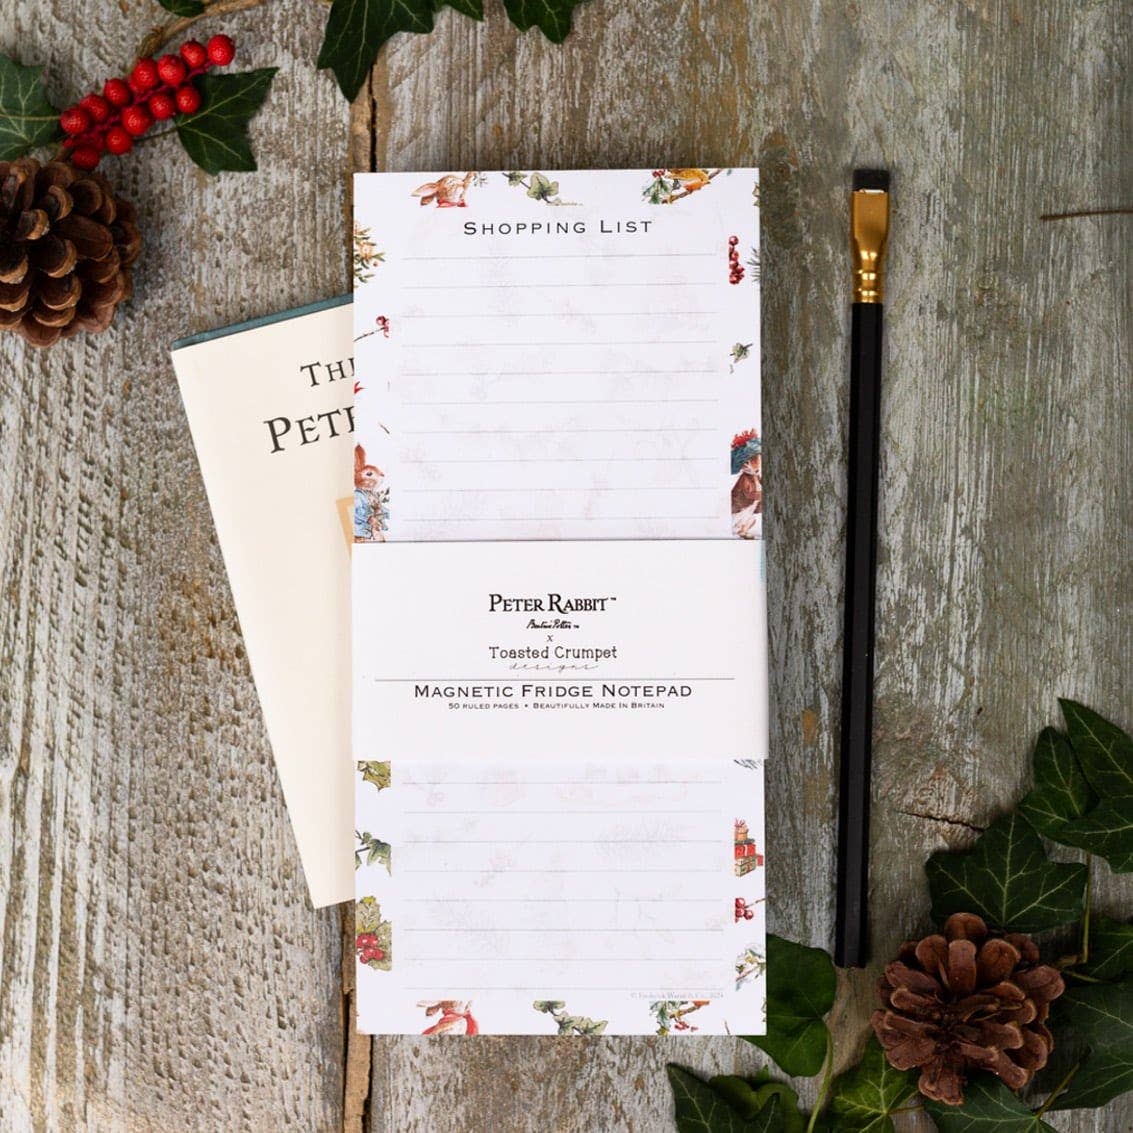 SHOPPING LIST
THE
PETE
PETER RABBIT™
Beatrix Potter ™
x
Toasted Crumpet
designs
MAGNETIC FRIDGE NOTEPAD
50 RULED PAGES • BEAUTIFULLY MADE IN BRITAIN
© Frederick Warne & Co., 2024